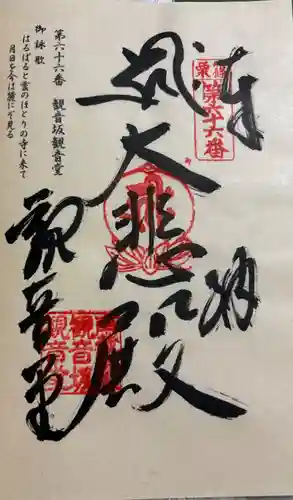 第六十六番 観音坂観音堂
御詠歌
はるばると雲のほとりの寺に来て
月日を今は麓にぞ見る
奉拝
篠栗
第六十六番
大悲殿
観音堂